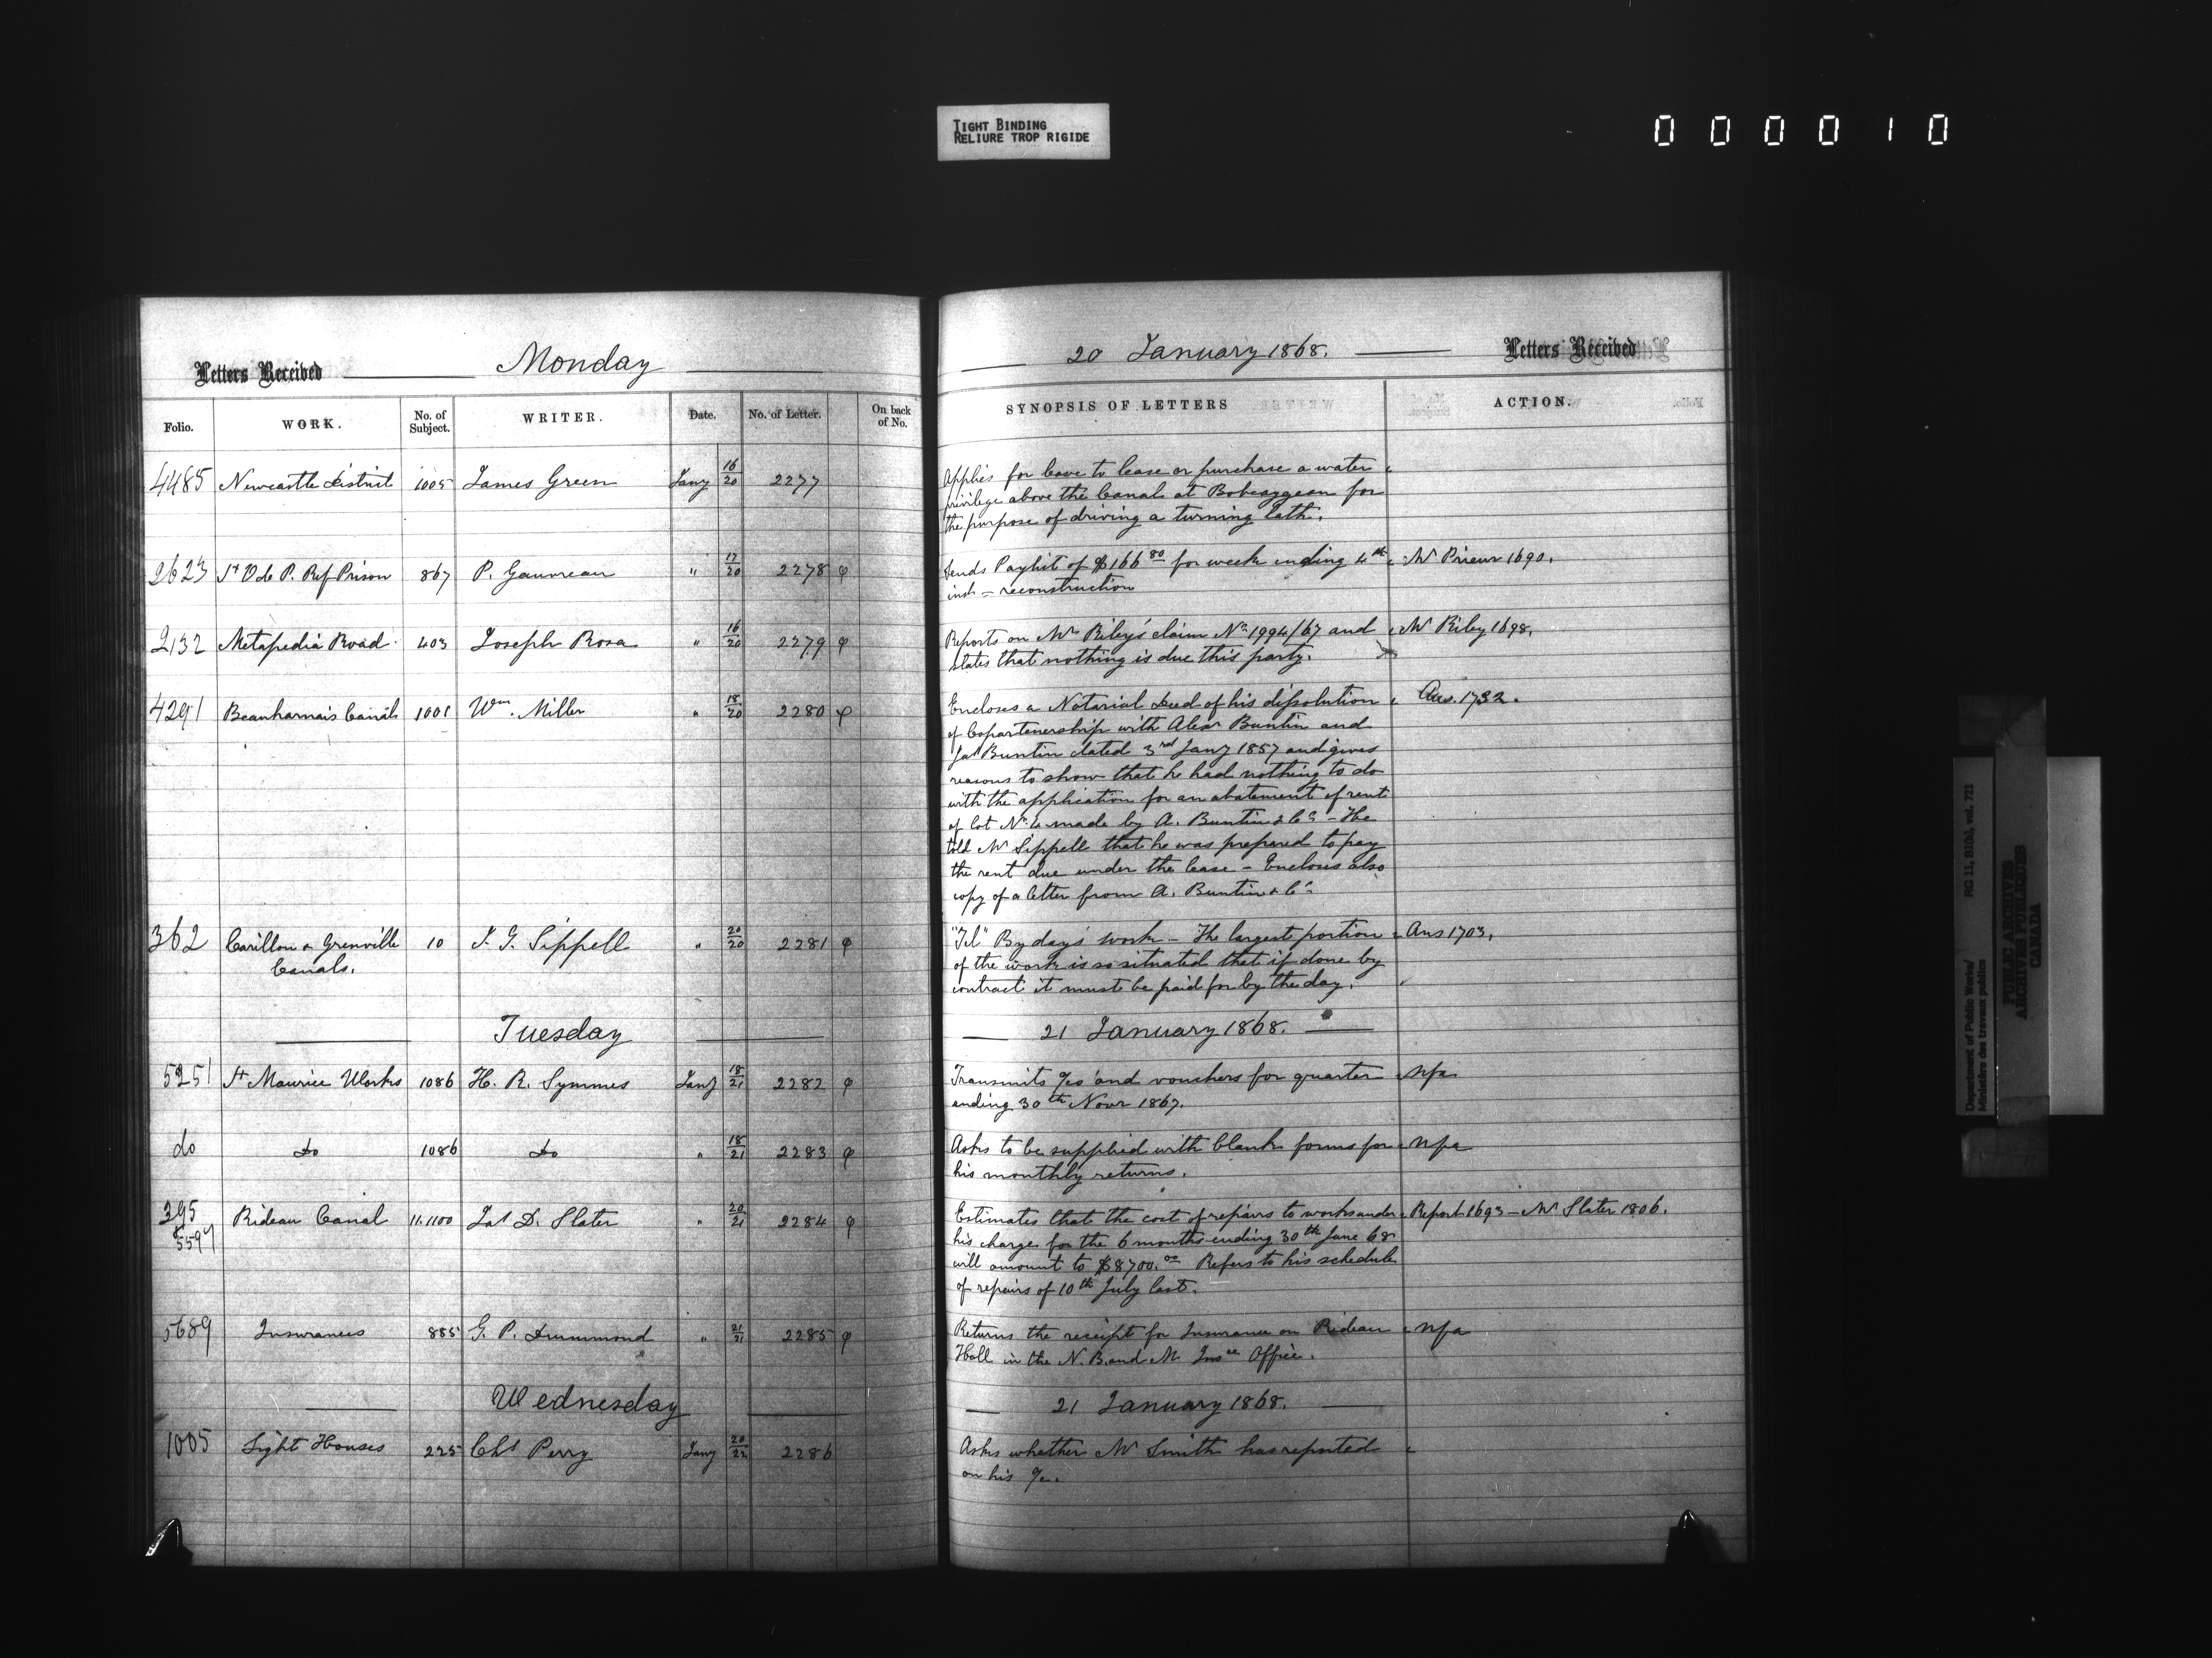 TIGHT BINDING
RELIURE TROP RIGIDE
000010
Letters Received Monday
20 January 1868. Letters Received
Folio. WORK. No. of Subject. WRITER. Date. No. of Letter. On back of No. SYNOPSIS OF LETTERS ACTION.
4485 Newcastle District 1005 James Green Jany 16/20 2277 Applies for leave to lease or purchase a water
privilege above the Canal at Bobcaygeon for
the purpose of driving a turning lath.
2623 St V de P. Ref Prison 867 P. Gauvreau " 17/20 2278 φ Sends Paylist of $166 80 for week ending 4th Mr Prieur 1690.
inst - reconstruction
2132 Metapedia Road 403 Joseph Rosa " 16/20 2279 φ Reports on Mr Riley's claim No 1994/67 and Mr Riley 1698.
states that nothing is due this party.
4291 Beauharnois Canal 1001 Wm. Miller " 18/20 2280 φ Encloses a Notarial Deed of his dissolution Ans. 1732.
of Copartenership with Alexr Buntin and
Jas Buntin dated 3rd Jany 1857 and gives
reasons to show that he had nothing to do
with the application for an abatement of rent
of lot No 4 made by A. Buntin & Co - He
told Mr Sippell that he was prepared to pay
the rent due under the lease - Encloses also
copy of a letter from A. Buntin & Co
362 Carillon & Grenville 10 J. G. Sippell " 20/20 2281 φ "Tel" By day's work - The largest portion Ans 1703.
Canals. of the work is so situated that if done by
contract it must be paid for by the day.
Tuesday 21 January 1868.
5251 St Maurice Works 1086 H. R. Symmes Jany 18/21 2282 φ Transmits a/cs and vouchers for quarter npa
ending 30th Novr 1867.
do do 1086 do " 18/21 2283 φ Asks to be supplied with blank forms for npa
his monthly returns.
395 Rideau Canal 11.1100 Jas D. Slater " 20/21 2284 φ Estimates that the cost of repairs to works under Report 1693 - Mr Slater 1806.
5597 his charge for the 6 months ending 30th June 68
will amount to $8700.00 Refers to his schedule
of repairs of 10th July last.
5689 Insurances 885 G. P. Drummond " 21/21 2285 φ Returns the receipt for Insurance on Rideau npa
Hall in the N. B. and M Insce Office.
Wednesday 21 January 1868.
1005 Light Houses 225 Chs Perry Jany 20/22 2286 Asks whether Mr Smith has reported
on his a/c.
Department of Public Works/ RG 11, B1(b), vol. 721
Ministère des travaux publics
PUBLIC ARCHIVES
ARCHIVES PUBLIQUES
CANADA